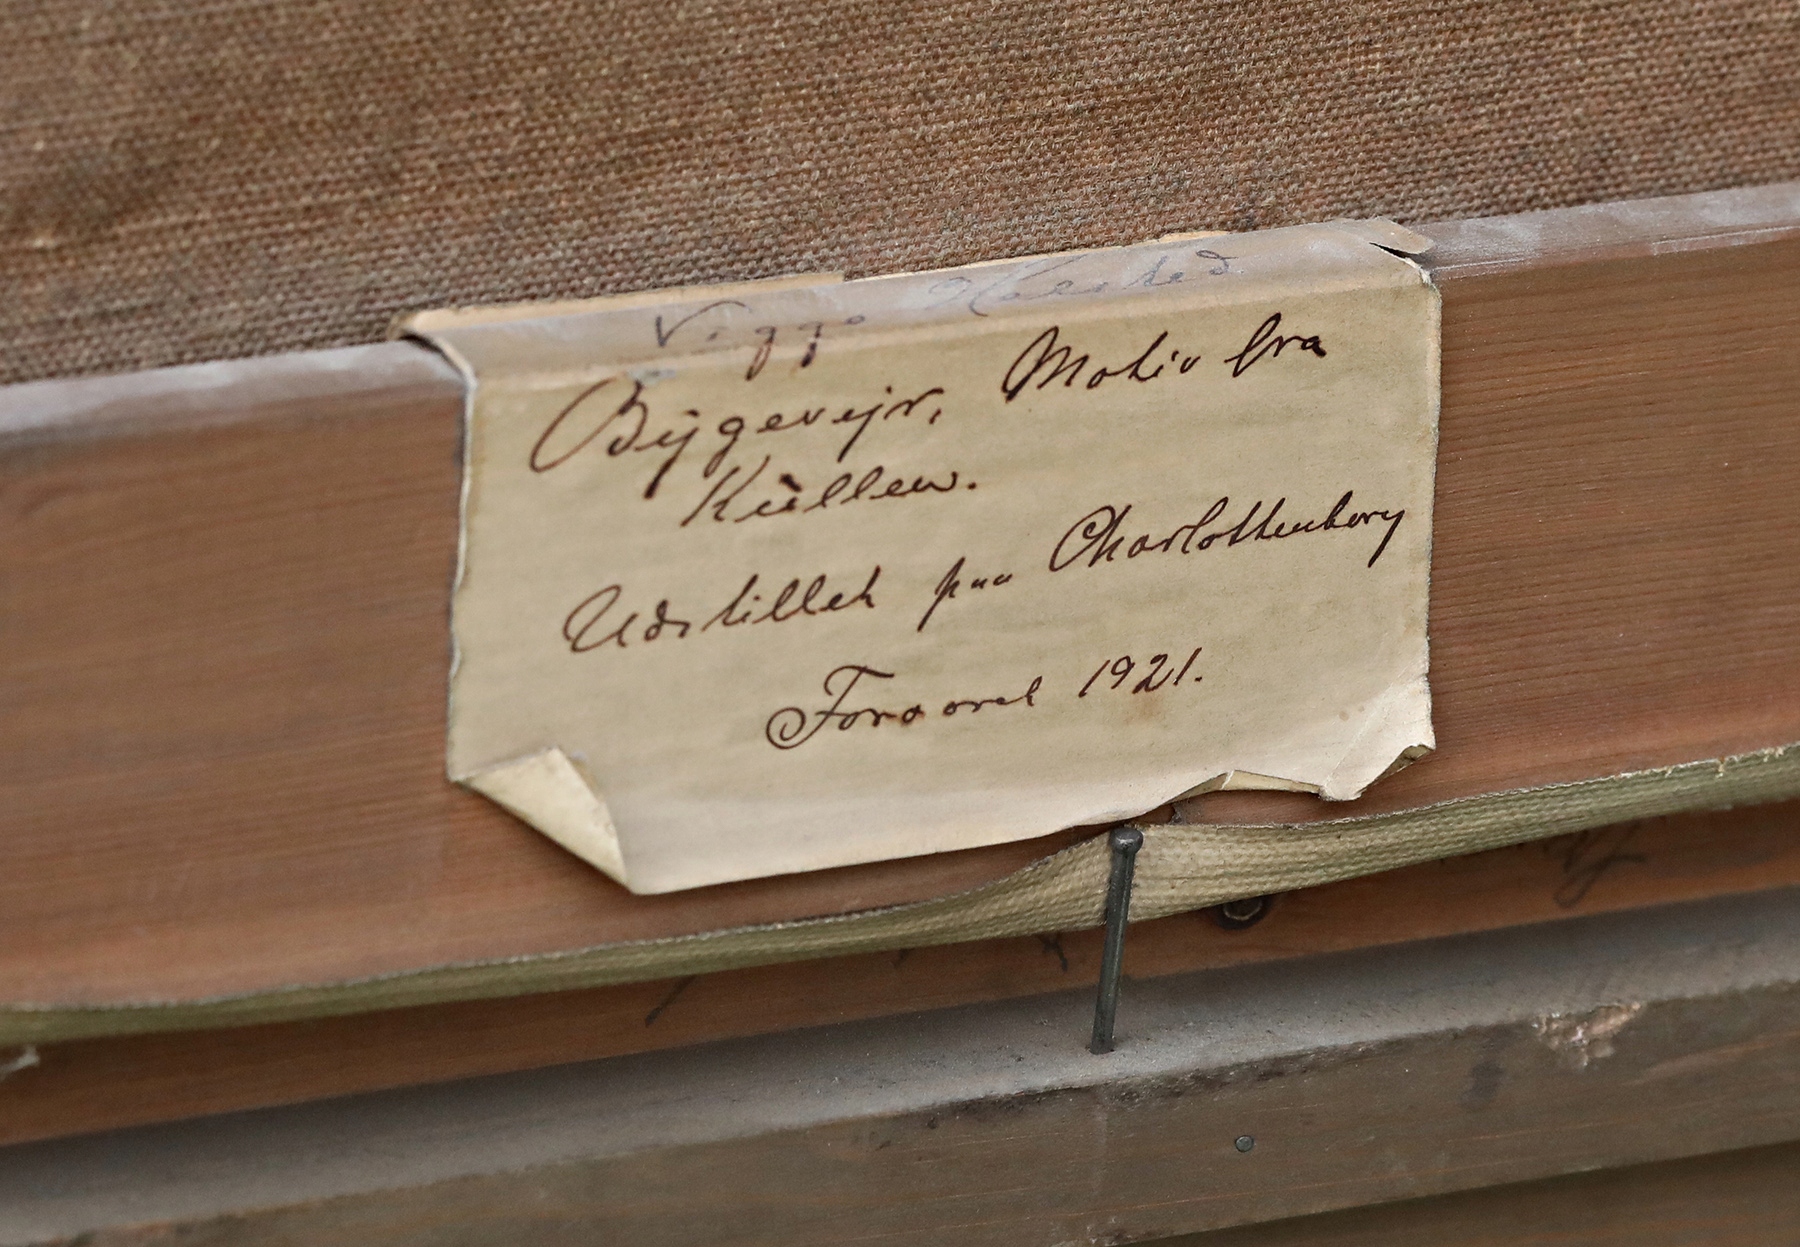 Viggo
Bygevejr, Motiv fra
Kullen.
Udstillet paa Charlottenborg
Foraaret 1921.